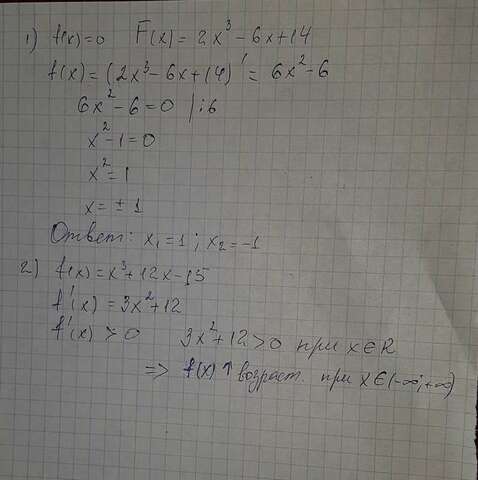 1) f(x)=0 F(x)=2x³-6x+14
f(x)=(2x³-6x+14)'=6x²-6
6x²-6=0 |:6
x²-1=0
x²=1
x=±1
Ответ: x₁=1; x₂=-1
2) f(x)=x³+12x-15
f'(x)=3x²+12
f'(x)>0 3x²+12>0 при x∈R
=> f(x)↑ возраст. при x∈(-∞;+∞)